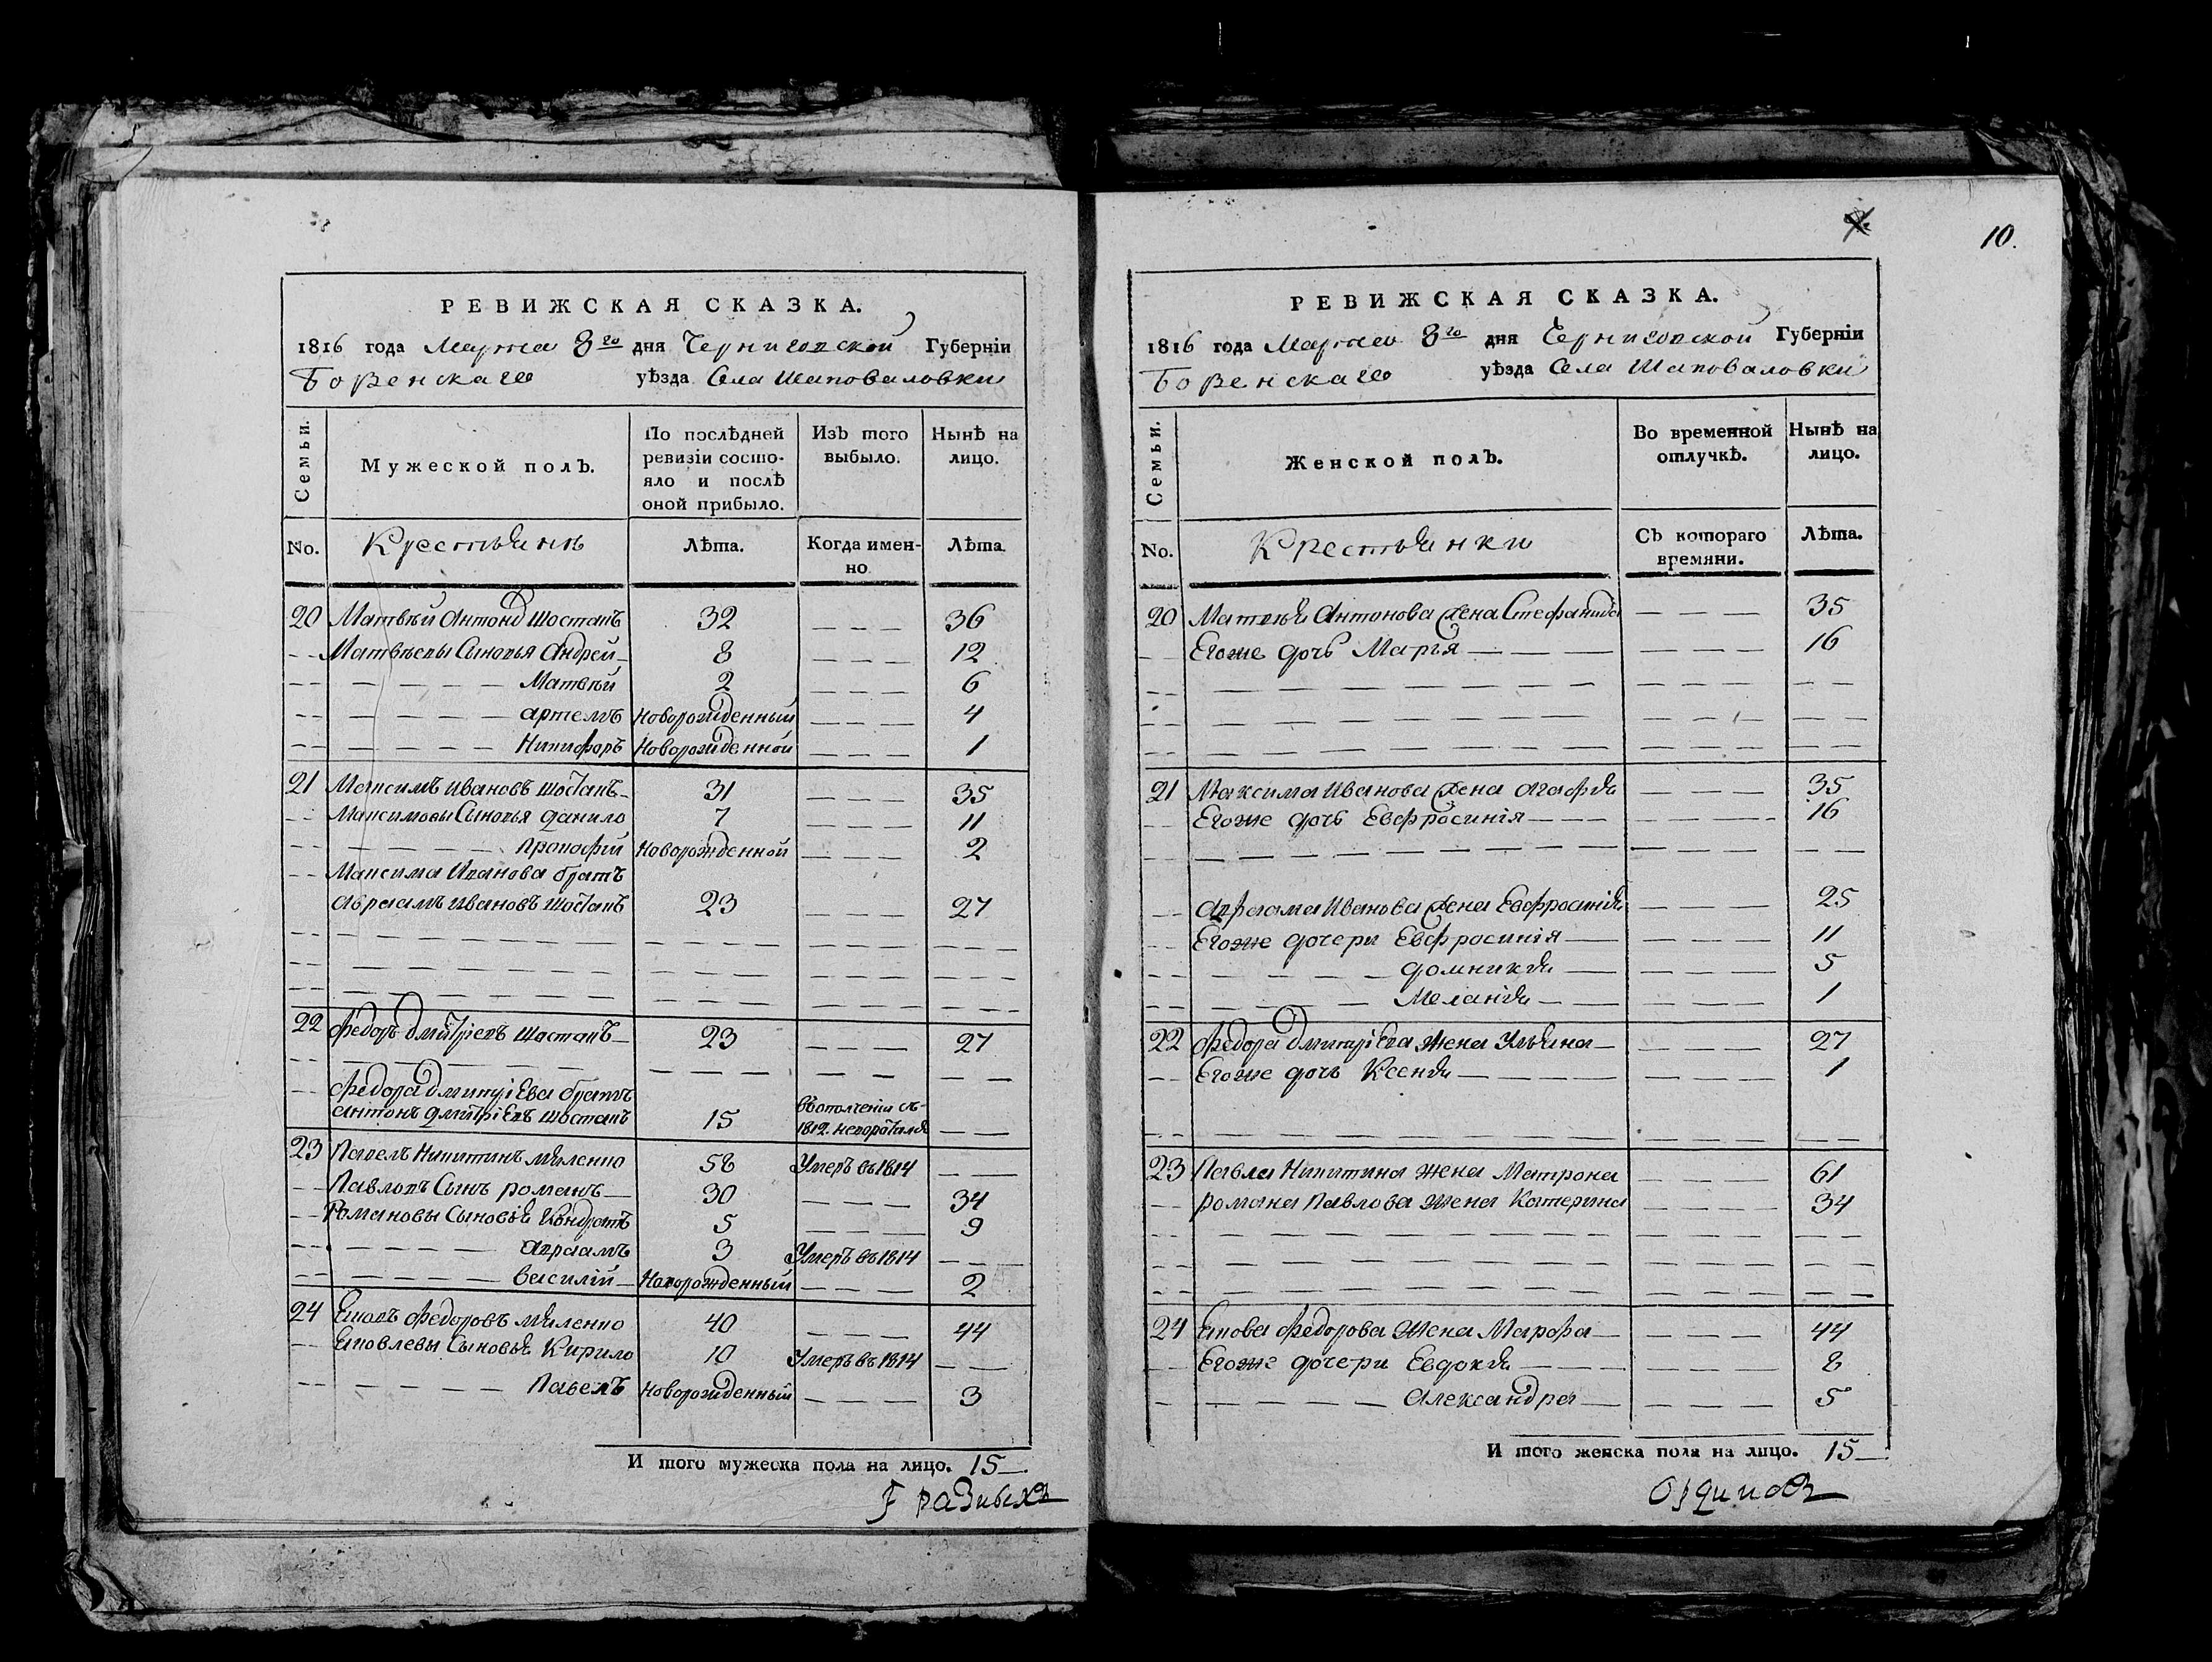 РЕВИЖСКАЯ СКАЗКА.
1816 года Марта 8го дня Черниговской Губернїи
Борзенскаго уѣзда Села Шаповаловки
Семьи.
Мужеской полъ.
По послѣдней ревизїи состо-
яло и послѣ оной прибыло.
Изъ того выбыло.
Нынѣ на лицо.
No. Крестьянъ Лѣта. Когда имен-
но Лѣта.
20 Матвѣй Антонов Шостакъ 32 36
Матвѣевы Сыновья Андрей 8 12
Матвѣй 2 6
артемъ новорожденный 4
Никифоръ Новорожденной 1
21 Максимъ Ивановъ шостакъ 31 35
Максимовы Сыновья данило 7 11
Прокофій Новорожденной 2
Максима Иванова братъ
Авраамъ Ивановъ шостакъ 23 27
22 Федоръ Дмитріевъ Шостакъ 23 27
Федора Дмитріева братъ
антонъ дмитріевъ шостакъ 15 въ ополченіи съ
1812. неворотился
23 Павелъ Никитинъ мяленко 58 Умеръ въ 1814
Павловъ Сынъ романъ 30 34
Романовы Сыновья Кондратъ 5 9
авраамъ 3 Умеръ въ 1814
василій Новорожденный 2
24 Яковъ Федоровъ мяленко 40 44
Яковлевы Сыновья Кирило 10 Умеръ въ 1814
Павелъ новорожденный 3
И того мужеска пола на лицо. 15
10.
РЕВИЖСКАЯ СКАЗКА.
1816 года Марта 8го дня Черниговской Губернїи
Борзенскаго уѣзда Села Шаповаловки
Семьи.
Женской полъ.
Во временной отлучкѣ.
Нынѣ на лицо.
No. Крестьянки Съ котораго времяни. Лѣта.
20 Матвѣя Антонова жена Стефанида 35
Егоже дочь Марья 16
21 Максима Иванова жена агафія 35
Егоже дочь Евфросинія 16
авраама Иванова жена Евфросинія 25
Егоже дочери Евфросинія 11
домникія 5
Меланія 1
22 Федора Дмитріева жена Ульяна 27
Егоже дочь Ксенія 1
23 Павла Никитина жена Матрона 61
романа Павлова жена Катерина 34
24 Якова Федорова жена Марфа 44
Егоже дочери Евдокія 8
Александра 5
И того женска пола на лицо. 15